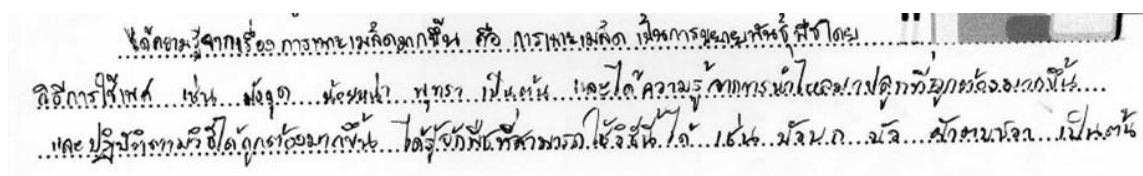 ได้ความรู้จากเรื่อง การเพาะเมล็ดมากขึ้น คือ การเพาะเมล็ด เป็นการขยายพันธุ์พืชโดย
วิธีการใช้เพศ เช่น มังคุด น้อยหน่า พุทรา เป็นต้น และได้ความรู้จากการนำไหลมาปลูกที่ถูกต้องมากขึ้น
และปฏิบัติตามวิธีได้ถูกต้องมากขึ้น ได้รู้จักพืชที่สามารถใช้วิธีนี้ได้ เช่น บัวบก บัว ผักตบชวา เป็นต้น